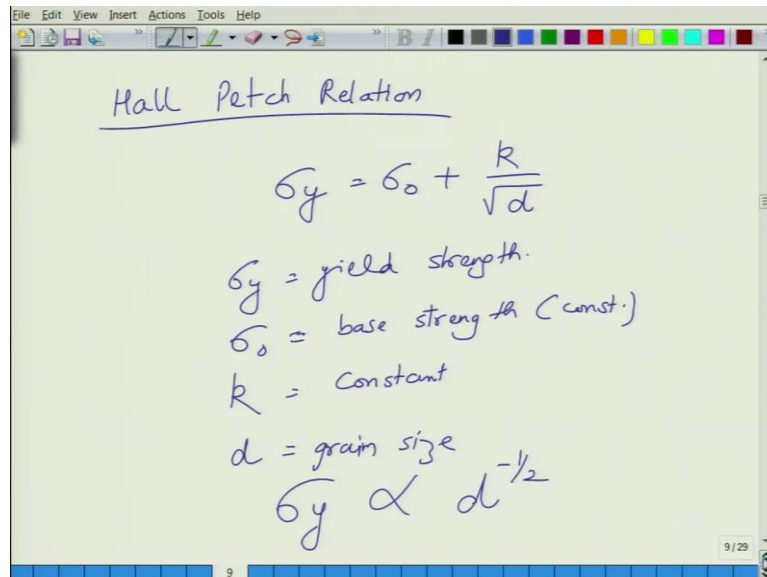 File Edit View Insert Actions Tools Help
B I
Hall Petch Relation
σy = σ0 + k/√d
σy = yield strength.
σ0 = base strength (const.)
k = Constant
d = grain size
σy ∝ d^-1/2
9/29
9